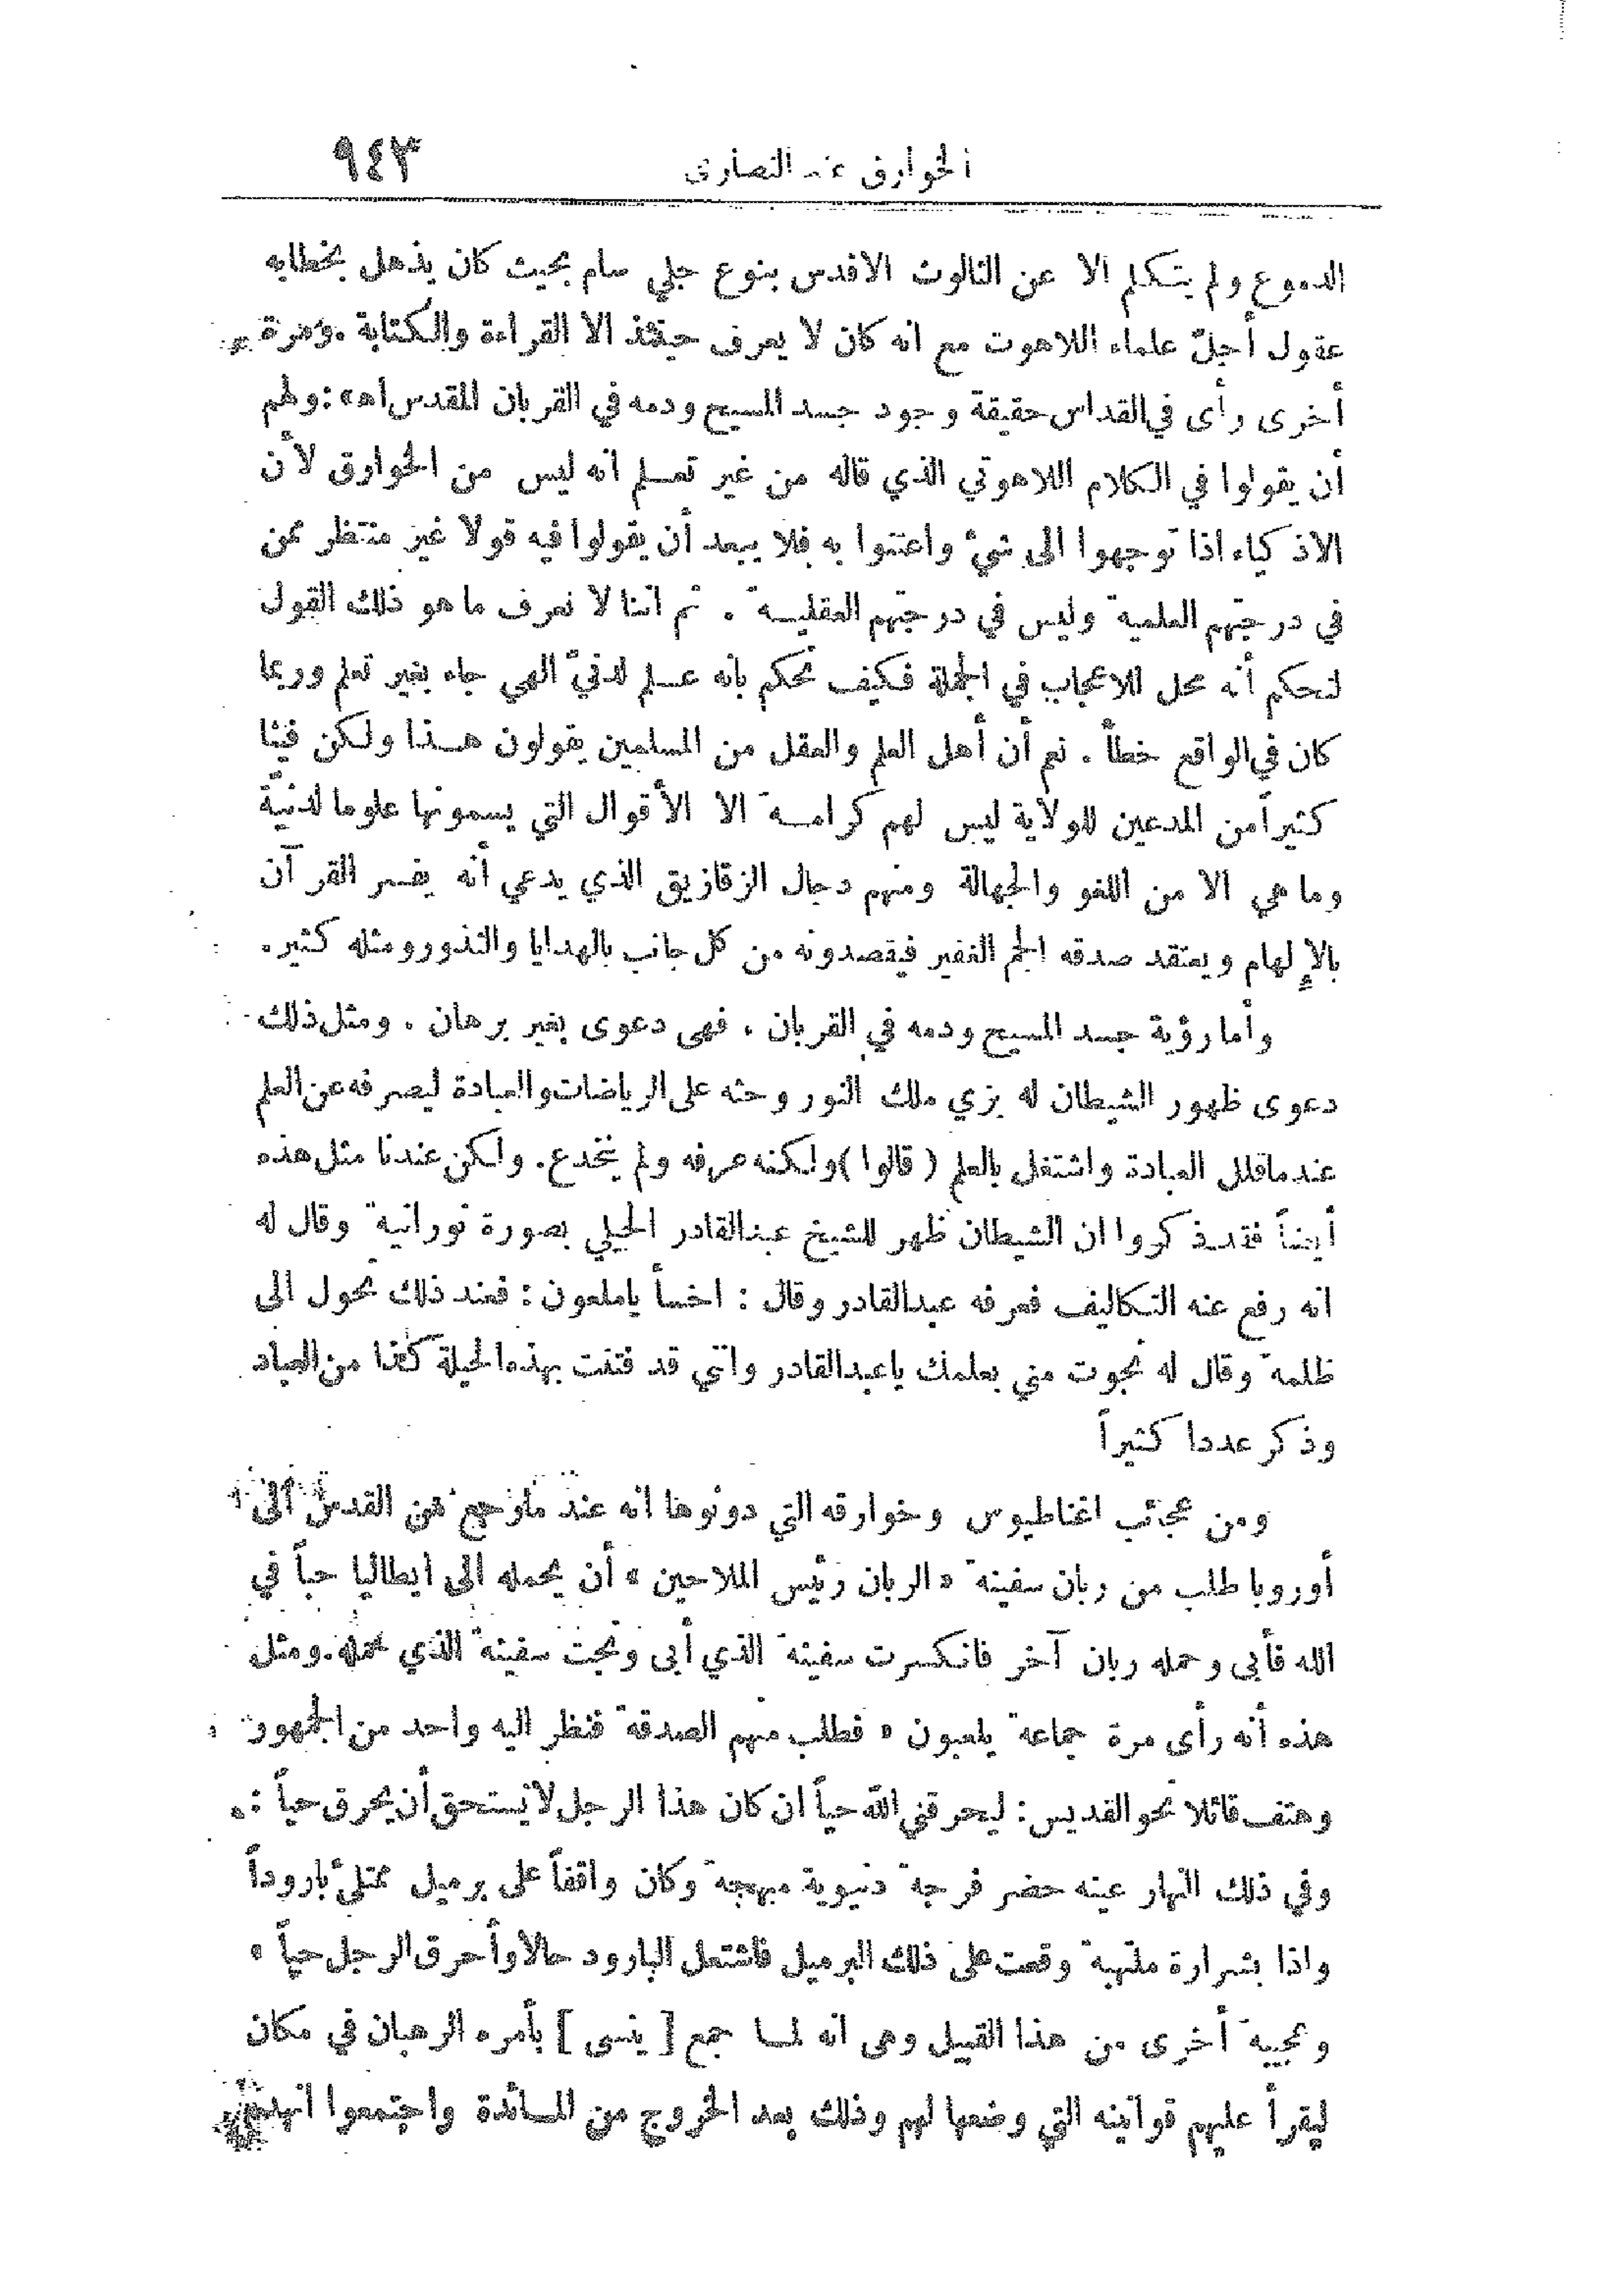 الخوارق عند النصارى ٩٤٣
الدموع ولم يتكلم الا عن الثالوث الاقدس بنوع جلي سام بحيث كان يذهل بخطابه
عقول أجلّ علماء اللاهوت مع انه كان لا يعرف حينئذ الا القراءة والكتابة . ومرة
أخرى رأى في القداس حقيقة وجود جسد المسيح ودمه في القربان المقدس اه» : ولهم
أن يقولوا في الكلام اللاهوتي الذي قاله من غير تعلم انه ليس من الخوارق لأن
الاذكياء اذا توجهوا الى شيء واعتنوا به فلا يبعد أن يقولوا فيه قولا غير منتظر ممن
في درجتهم العلمية وليس في درجتهم العقلية . ثم اننا لا نعرف ما هو ذلك القول
لنحكم أنه محل للاعجاب في الجملة فكيف نحكم بانه علم لدنيّ الهي جاء بغير تعلم وربما
كان في الواقع خطأ . نعم أن أهل العلم والعقل من المسلمين يقولون هذا ولكن فينا
كثيراً من المدعين للولاية ليس لهم كرامة الا الأقوال التي يسمونها علوما لدنيّة
وما هي الا من اللغو والجهالة ومنهم دجال الزقازيق الذي يدعي أنه يفسر القرآن
بالإلهام ويعتقد صدقه الجم الغفير فيقصدونه من كل جانب بالهدايا والنذور ومثله كثير .
وأما رؤية جسد المسيح ودمه في القربان ، فهى دعوى بغير برهان ، ومثل ذلك
دعوى ظهور الشيطان له بزي ملك النور وحثه على الرياضات والعبادة ليصرفه عن العلم
عندما قلل العبادة واشتغل بالعلم ( قالوا ) ولكنه عرفه ولم ينخدع . ولكن عندنا مثل هذه
أيضاً فقد ذكروا ان الشيطان ظهر للشيخ عبدالقادر الجيلي بصورة نورانية وقال له
انه رفع عنه التكاليف فعرفه عبدالقادر وقال : اخسأ ياملعون : فعند ذلك تحول الى
ظلمة وقال له نجوت مني بعلمك ياعبدالقادر وانني قد فتنت بهذه الحيلة كذا من العباد
وذكر عددا كثيراً
ومن عجائب اغناطيوس وخوارقه التي دونوها انه عند ما رجع من القدس الى
أوروبا طلب من ربان سفينة « الربان رئيس الملاحين » أن يحمله الى ايطاليا حباً في
الله فأبى وحمله ربان آخر فانكسرت سفينة الذي أبى ونجت سفينة الذي حمله . ومثل
هذه أنه رأى مرة جماعة يلعبون « فطلب منهم الصدقة فنظر اليه واحد من الجمهور
وهتف قائلا نحو القديس : ليحرقني الله حياً ان كان هذا الرجل لا يستحق أن يحرق حياً : »
وفي ذلك النهار عينه حضر فرجة دنيوية مبهجة وكان واقفاً على برميل ممتلئ باروداً
واذا بشرارة ملتهبة وقعت على ذلك البرميل فاشتعل البارود حالا وأحرق الرجل حياً »
وعجيبة أخرى من هذا القبيل وهى انه لما جمع [ ينسى ] بأمره الرهبان في مكان
ليقرأ عليهم قوانينه التي وضعها لهم وذلك بعد الخروج من المائدة واجتمعوا انهدم